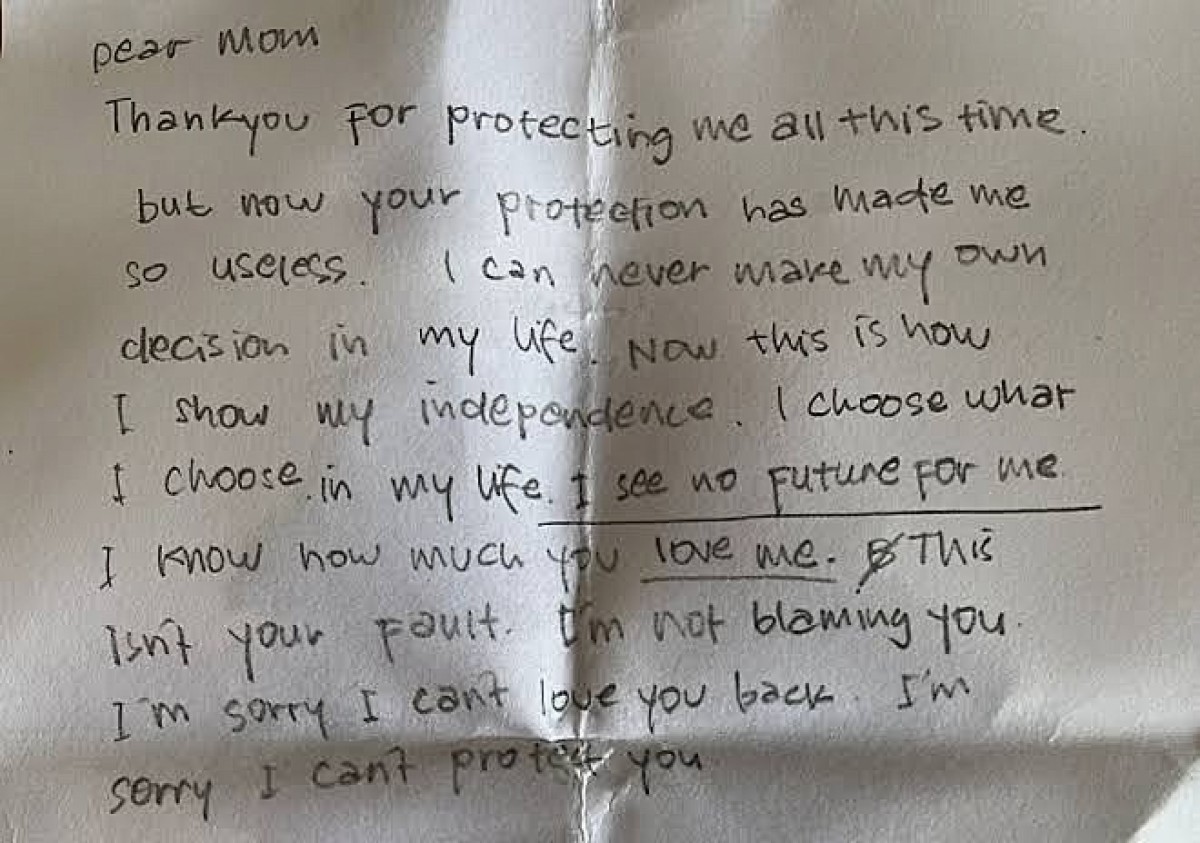 Dear Mom
Thankyou for protecting me all this time.
but now your protection has made me
so useless. I can never make my own
decision in my life. Now this is how
I show my independence. I choose what
I choose in my life. I see no future for me
I know how much you love me. This
isn't your fault. I'm not blaming you.
I'm sorry I can't love you back. I'm
sorry I can't protect you